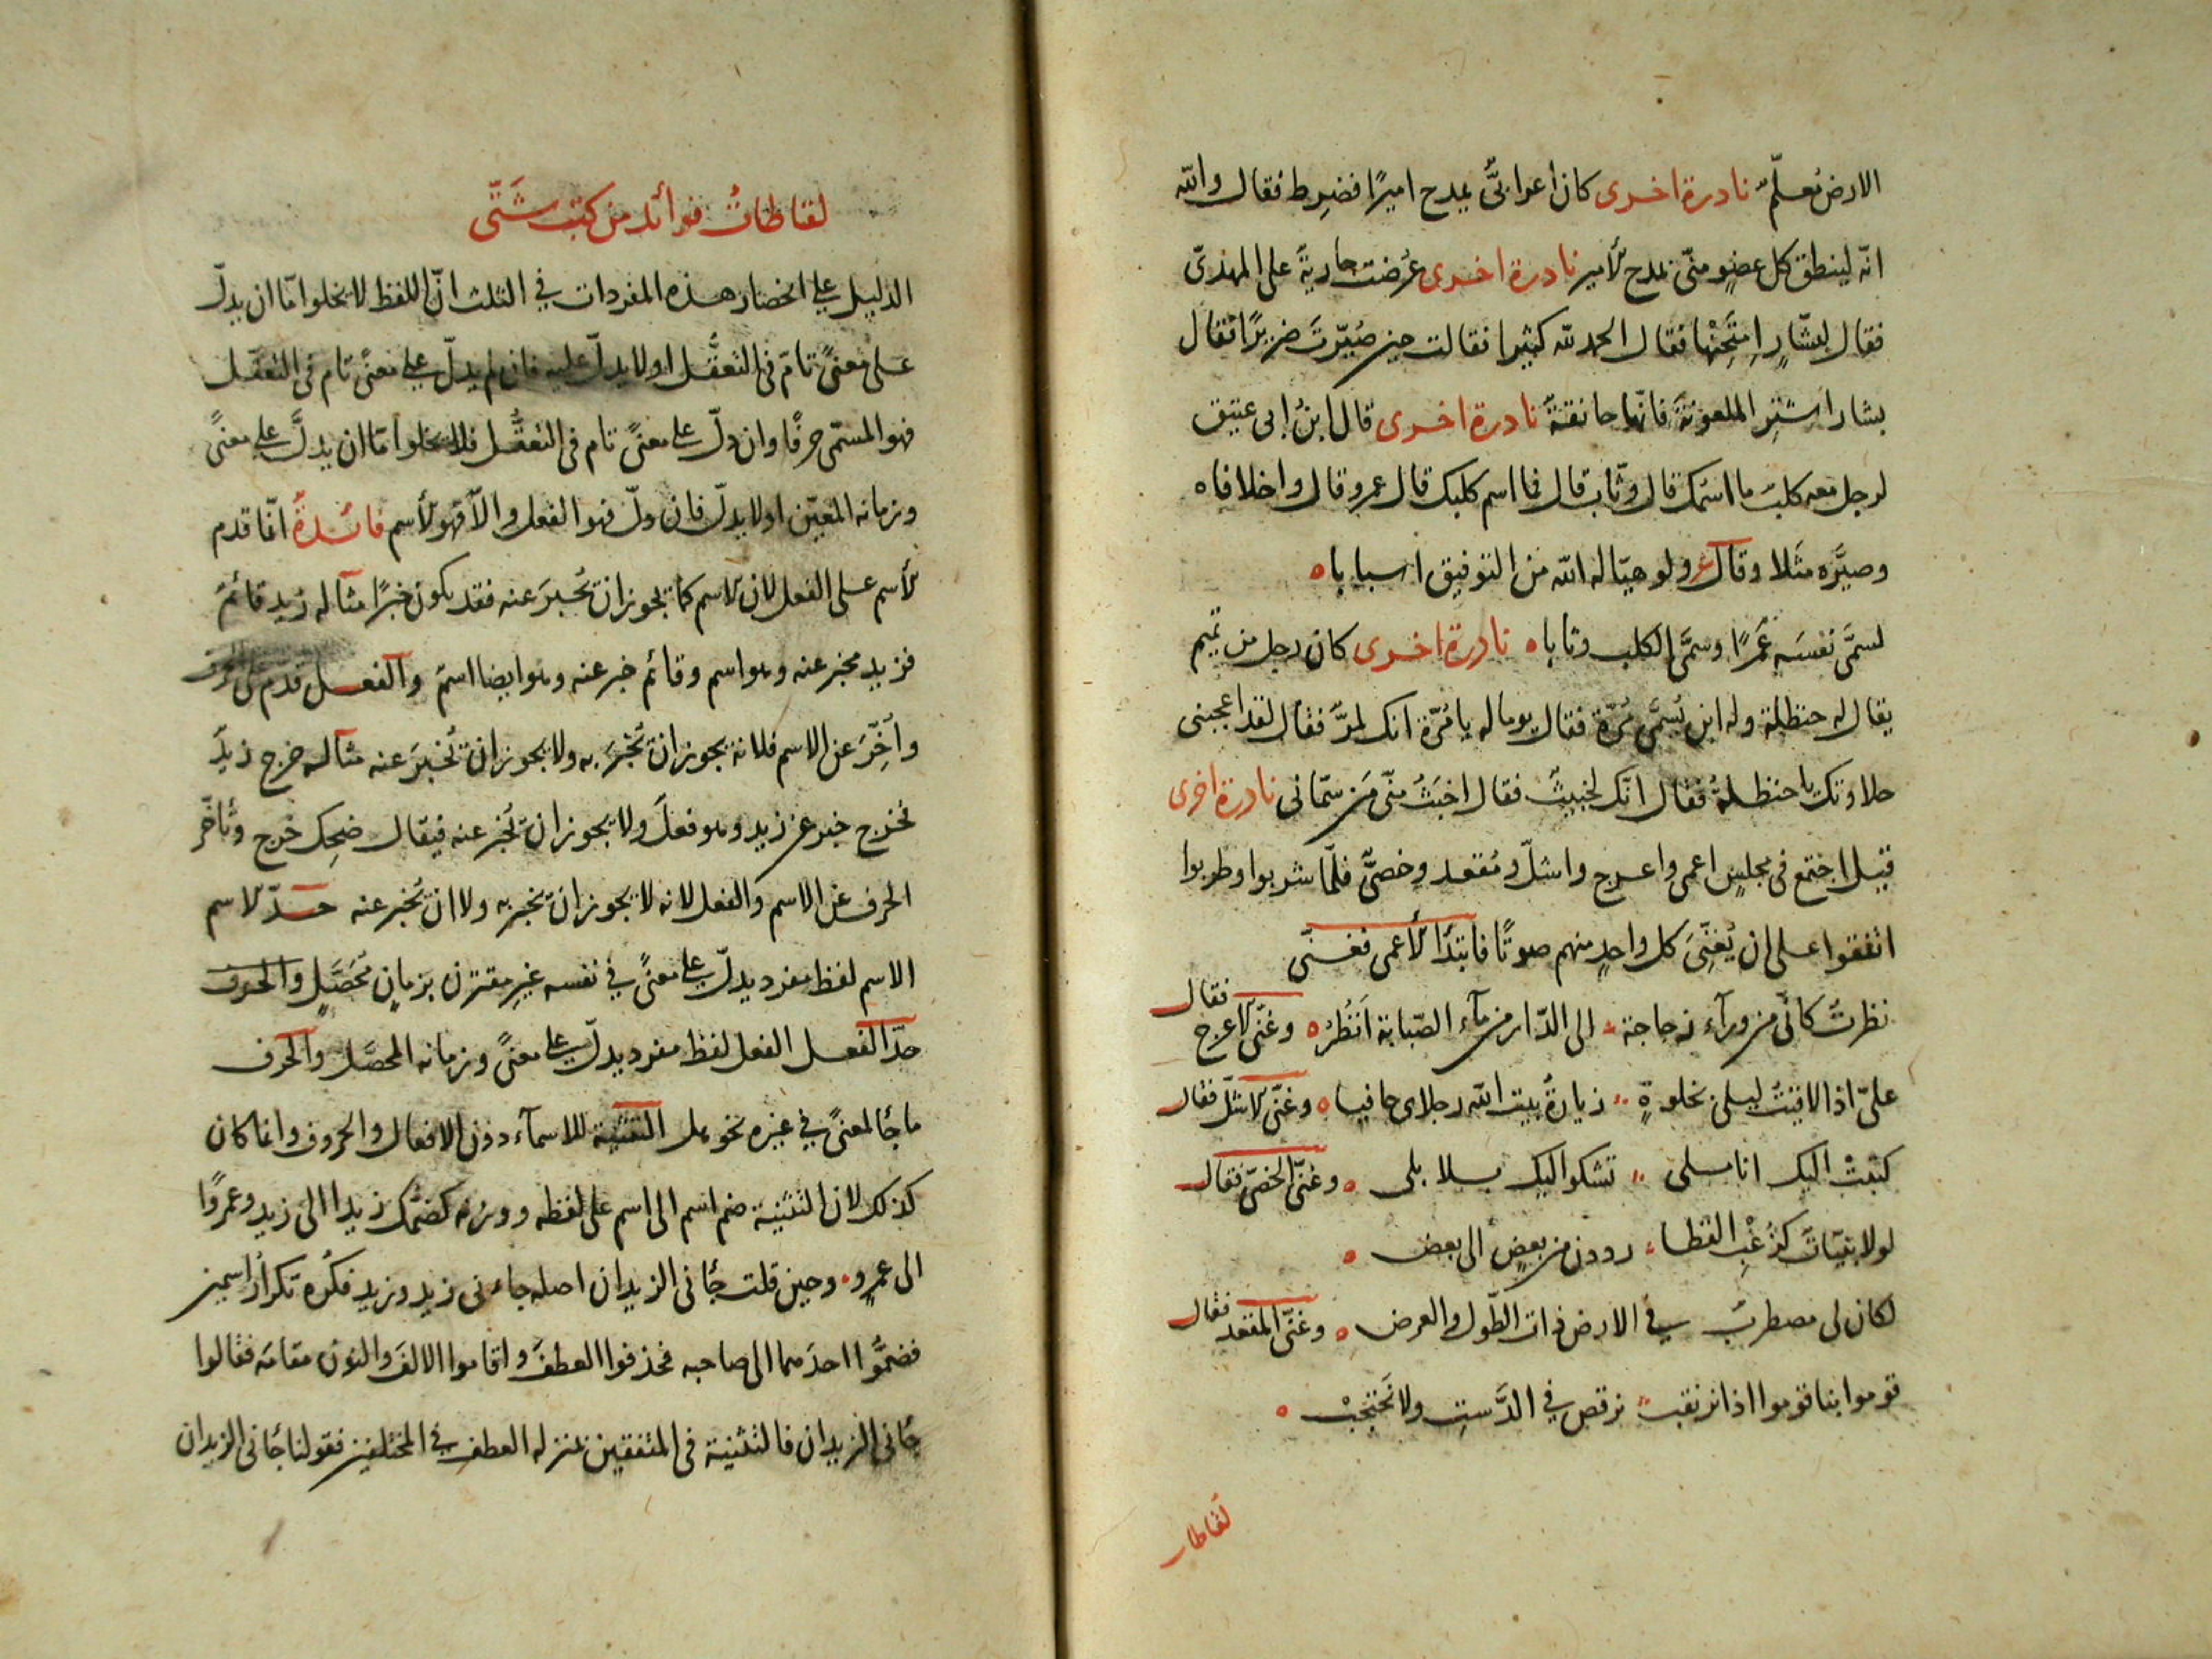 الارض تعلّم نادرة اخرى كان اعرابىٌّ يمدح اميرًا فضرِط فقال والله
انّه لينطق كل عضوٍ منّى بمدح الأمير نادرة اخرى عُرضت جاريةٌ على المهدىّ
فقال لبشّارٍ اِمتَحِنْها فقال الحمد لله كثيرا فقالت حين صُيّرتَ ضريرًا فقال
بشار اشترِ الملعونة فانّها حاذقةٌ نادرة اخرى قال ابنُ ابى عتيق
لرجل معه كلبٌ ما اسمك قال وثّاب قال فما اسم كلبك قال عمرو قال واخلافاه
وصيَّره مثَلا وقال ع ولو هيّا له الله من التوفيق اسبابا
لسمَّى نفسَه عَمرًا وسمَّى الكلب وثابا نادرة اخرى كان رجل من تميم
يقال له حنظلة وله ابن يُسمَّى مُرّة فقال يوما له يا مُرّة انك لمرٌّ فقال لقد اعجبنى
حلاوتك يا حنظلةُ فقال انّك لخبيثٌ فقال اخبَثُ منّى مَن سمّانى نادرة اخرى
قيل اجتمع فى مجلسٍ اعمى واعرج واشلّ ومُقعد وخصىٌّ فلمّا شربوا وطربوا
اتفقوا على ان يُغنِّىَ كل واحدٍ منهم صوتًا فابتدأ الأعمى فغنّى
نظرتُ كانّى من ورآء زجاجة الى الدّار من مآء الصّبابة اَنظُرُ وغنّى الاعرج فقال
علىّ اذا لاقيتُ ليلى بخلوةٍ زيارةُ بيت الله رجلاى حافيا وغنّى الاشلّ فقال
كتبتْ اليك انا سلمى تشكو اليك بسلا بلى وغنّى الخصىّ فقال
لولا بنيّاتٌ كزُغْبِ القطا رددن من بعضٍ الى بعض
لكان لى مضطربٌ فى الارض ذات الطّول والعرض وغنّى المقعد فقال
قوموا بنا قوموا اذا نرتقب نرقص فى الدَّستِ ولا نَحتجبْ
لقاطات
لقاطاتُ فوائد من كتب شَتّى
الدليل على انحصار هذه المفردات فى الثلث انّ اللفظ لا يخلوا امّا ان يدلّ
على معنًى تامّ فى التعقُّل او لا يدلّ عليه فان لم يدلّ على معنًى تام فى التعقّل
فهو المسمّى حرفًا وان دلّ على معنًى تام فى التعقُّل فلا يخلوا امّا ان يدلَّ على معنًى
وزمانه المعيّن او لا يدلّ فان دلّ فهو الفعل والاّ فهو الأسم فائدةٌ انّما قدم
الأسم على الفعل لان الاسم كما يجوز ان يُخبرَ عنه فقد يكون خبرًا مثاله زيد قائمٌ
فزيد مخبر عنه وهو اسم وقائم خبر عنه وهو ايضا اسمٌ والفعل قدّم على الحرف
واُخِّرَ عن الاسم فلانه يجوز ان يُخبَرَ به ولا يجوز ان يُخبَرَ عنه مثاله خرج زيدٌ
فخرج خبر عن زيد وهو فعلٌ ولا يجوز ان يُخبر عنه فيقال ضحِك خرج وتأخّر
الحرف عن الاسم والفعل لانه لا يجوز ان يخبر به ولا ان يُخبر عنه حدّ الاسم
الاسم لفظ مفرد يدلّ على معنًى فى نفسه غير مقترن بزمانٍ مُحصَّلٍ والحرف
حدّ الفعل الفعل لفظ مفرد يدلّ على معنًى وزمانه المحصَّل والحرف
ما جأ لمعنًى فى غيره نحو هل التثنية للاسمآء دون الافعال والحروف وانما كان
كذلك لان التثنية ضم اسم الى اسم على لفظه ووزنه كضمّك زيدا الى زيد وعمرًوا
الى عمرٍو وحين قلت جأنى الزيدان اصله جاءنى زيد وزيد فكُرِه تكرار اسمين
فضمُّوا احدهما الى صاحبه فحذفوا العطفَ واقاموا الالفَ والنون مقامَه فقالوا
جأنى الزيدان فالتثنية فى المتفقين بمنزله العطف فى المختلفين فقولنا جأنى الزيدان